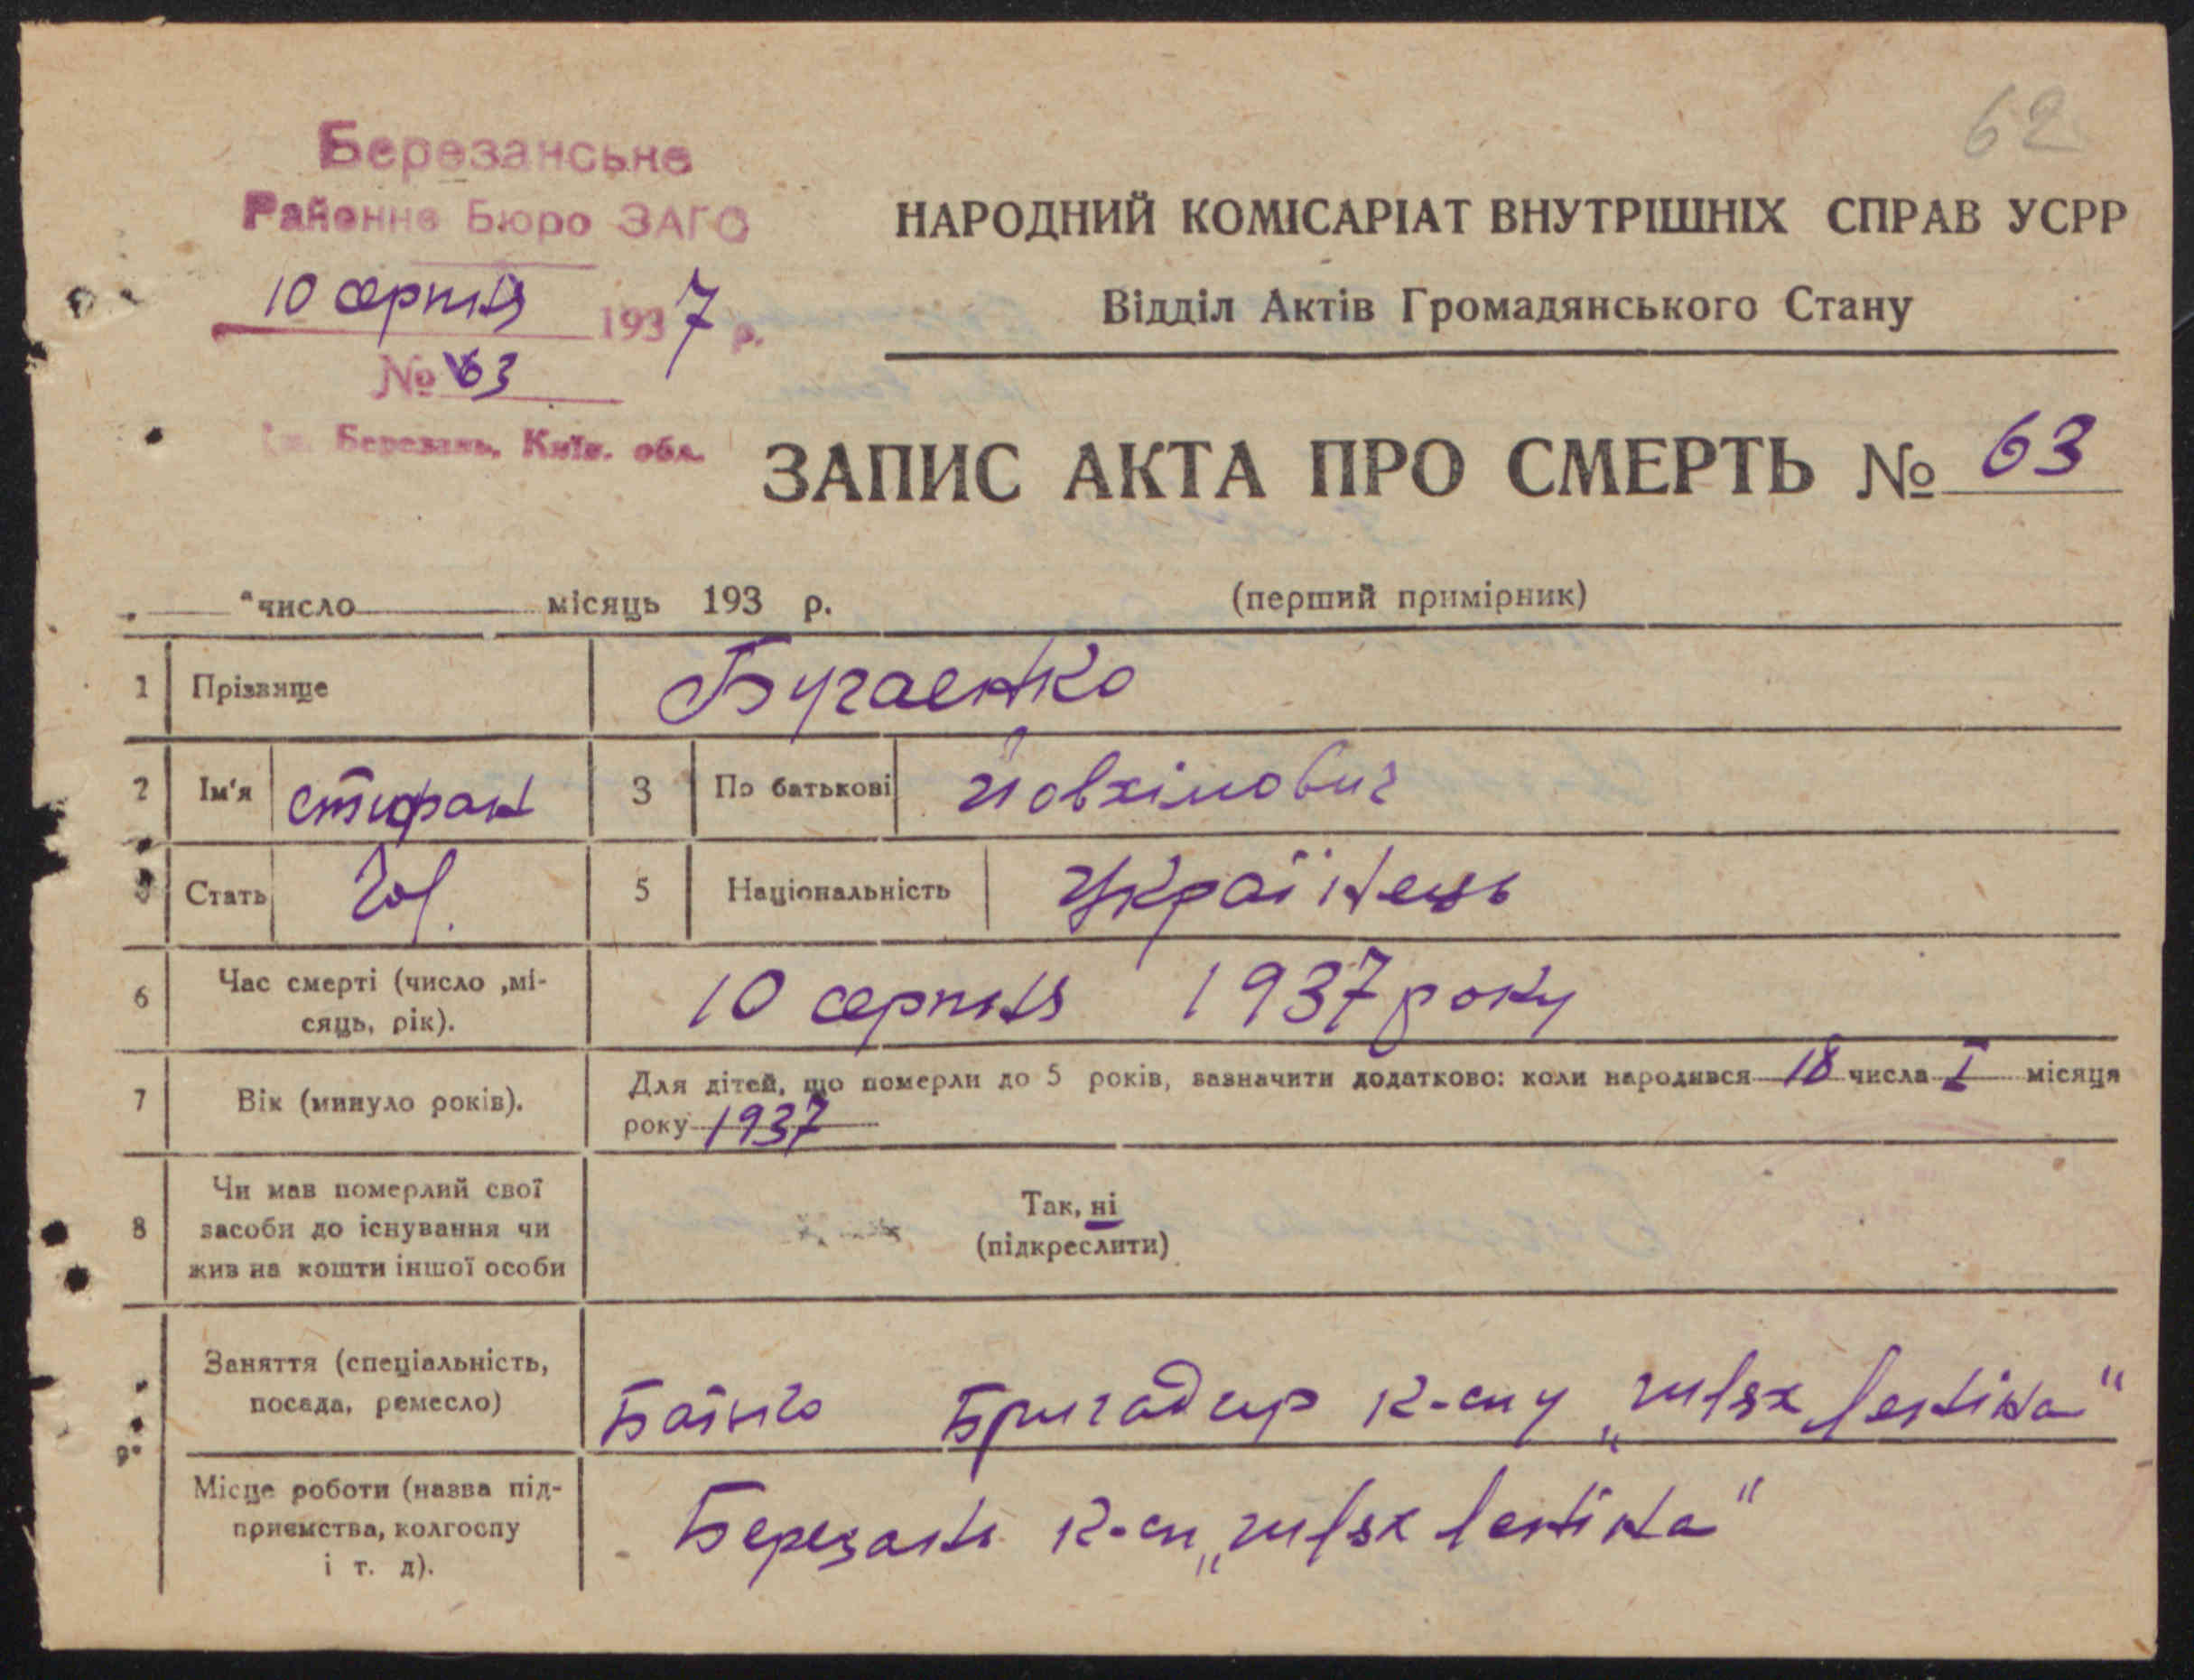 62
Березанське
Районне Бюро ЗАГС
10 серпня 1937 р.
№ 63
Березань, Київ. обл.
НАРОДНИЙ КОМІСАРІАТ ВНУТРІШНІХ СПРАВ УСРР
Відділ Актів Громадянського Стану
ЗАПИС АКТА ПРО СМЕРТЬ № 63
" " число місяць 193 р. (перший примірник)
1 Прізвище Бугаенко
2 Ім'я Стифан 3 По батькові Йовхімович
Стать Чол. 5 Національність Українець
6 Час смерті (число ,мі-
сяць, рік). 10 серпня 1937 року
7 Вік (минуло років). Для дітей, що померли до 5 років, зазначити додатково: коли народився 18 числа I місяця
року 1937
8 Чи мав померлий свої
засоби до існування чи
жив на кошти іншої особи
Так, ні
(підкреслити)
Заняття (спеціальність,
посада, ремесло) Батько Бригадир к-спу „шлях Леніна"
Місце роботи (назва під-
приємства, колгоспу
і т. д). Березань к-сп „шлях Леніна"